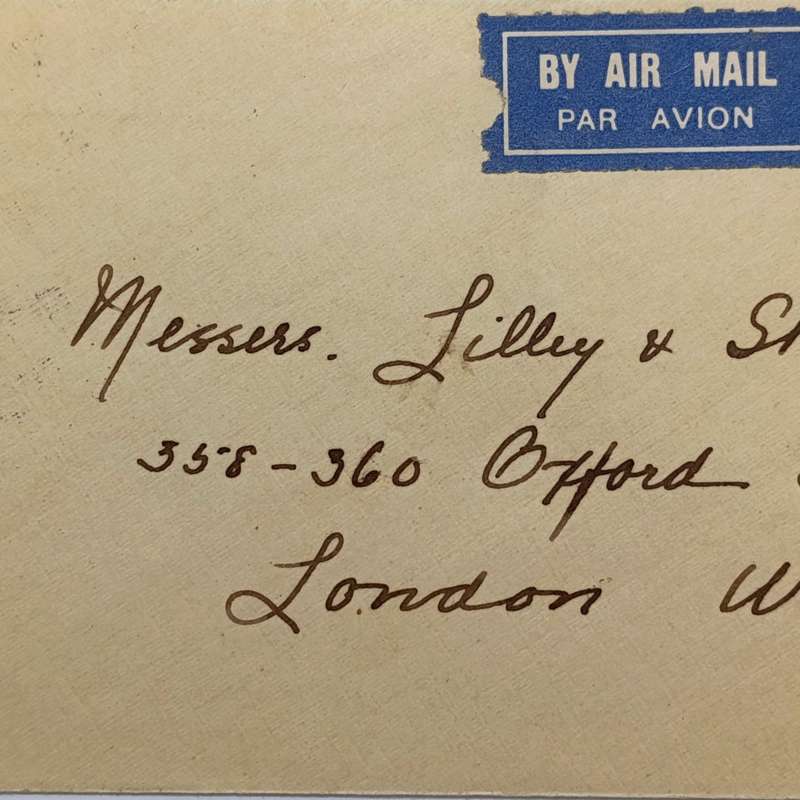 BY AIR MAIL
PAR AVION
Messers. Lilley & Sk
358-360 Oxford
London W